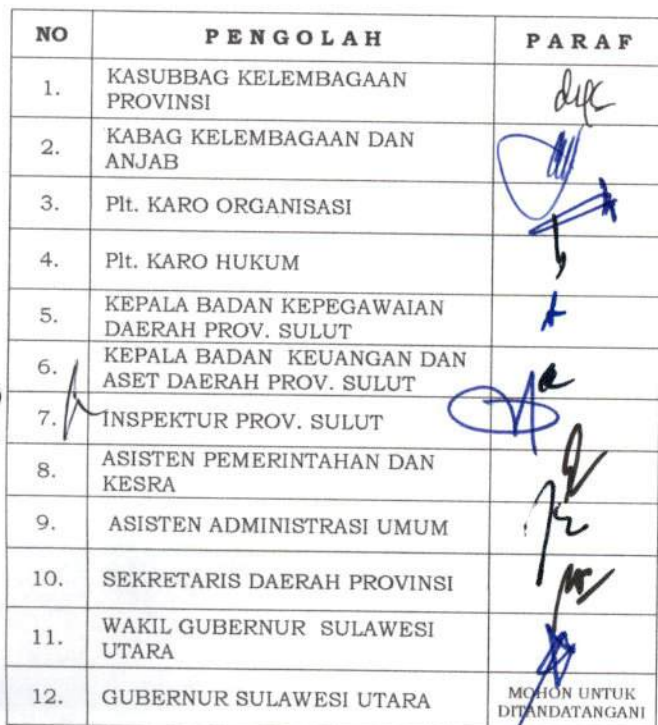 NO PENGOLAH PARAF
1. KASUBBAG KELEMBAGAAN
PROVINSI
2. KABAG KELEMBAGAAN DAN
ANJAB
3. Plt. KARO ORGANISASI
4. Plt. KARO HUKUM
5. KEPALA BADAN KEPEGAWAIAN
DAERAH PROV. SULUT
6. KEPALA BADAN KEUANGAN DAN
ASET DAERAH PROV. SULUT
7. INSPEKTUR PROV. SULUT
8. ASISTEN PEMERINTAHAN DAN
KESRA
9. ASISTEN ADMINISTRASI UMUM
10. SEKRETARIS DAERAH PROVINSI
11. WAKIL GUBERNUR SULAWESI
UTARA
12. GUBERNUR SULAWESI UTARA MOHON UNTUK
DITANDATANGANI